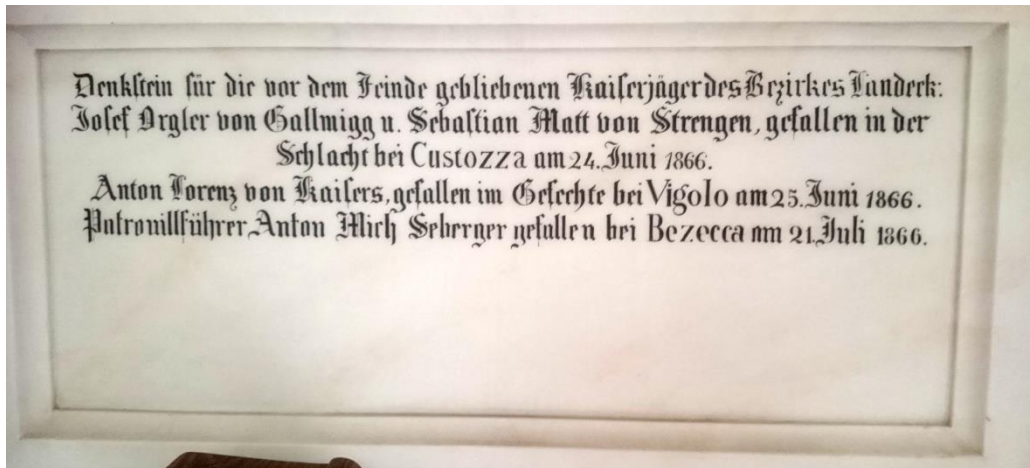 Denkstein für die vor dem Feinde gebliebenen Kaiserjäger des Bezirkes Landeck:
Josef Orgler von Gallmigg u. Sebastian Matt von Strengen, gefallen in der
Schlacht bei Custozza am 24. Juni 1866.
Anton Lorenz von Kaisers, gefallen im Gefechte bei Vigolo am 25. Juni 1866.
Patrouillführer Anton Mich Seberger gefallen bei Bezecca am 21. Juli 1866.